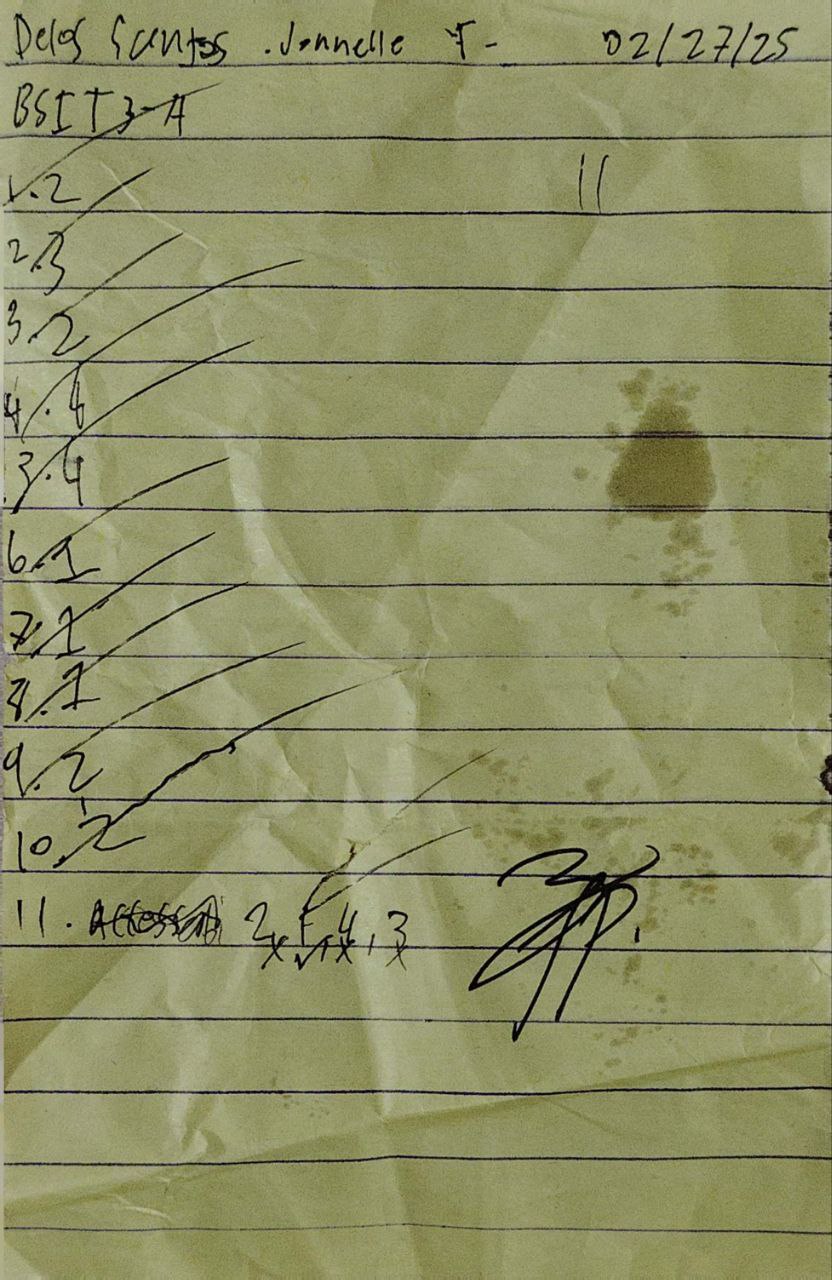 Delos Santos Jonnelle F. 02/27/25
BSIT 3-A
11
1. 2
2. 3
3. 2
4. 4
5. 4
6. 1
7. 1
8. 1
9. 2
10. 2
11. 2, 1, 4, 3